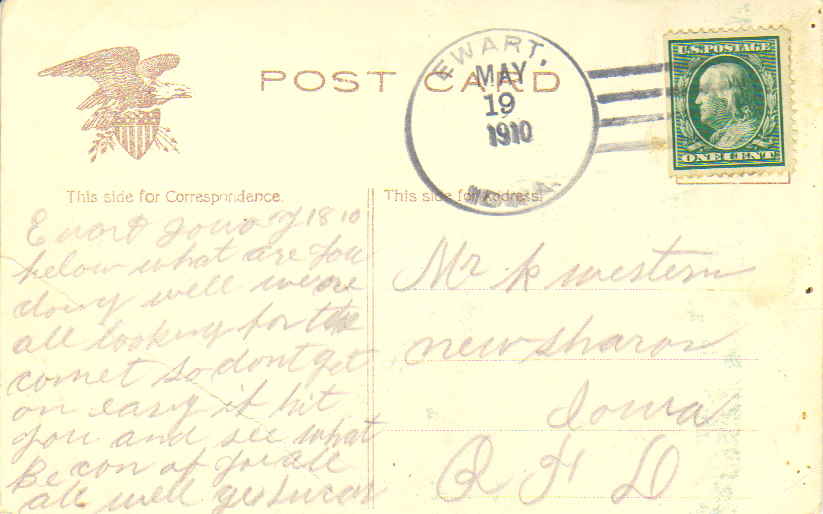 POST CARD
EWART,
MAY
19
1910
IOWA.
U.S. POSTAGE
ONE CENT
This side for Correspondence.
This side for Address.
Ewart Iowa 18 10
helow what are you
doing well we are
all looking for the
comet so dont get
on easy it hit
you and see what
Be con of you all
all well
Mr k western
new sharon
Iowa
R F D